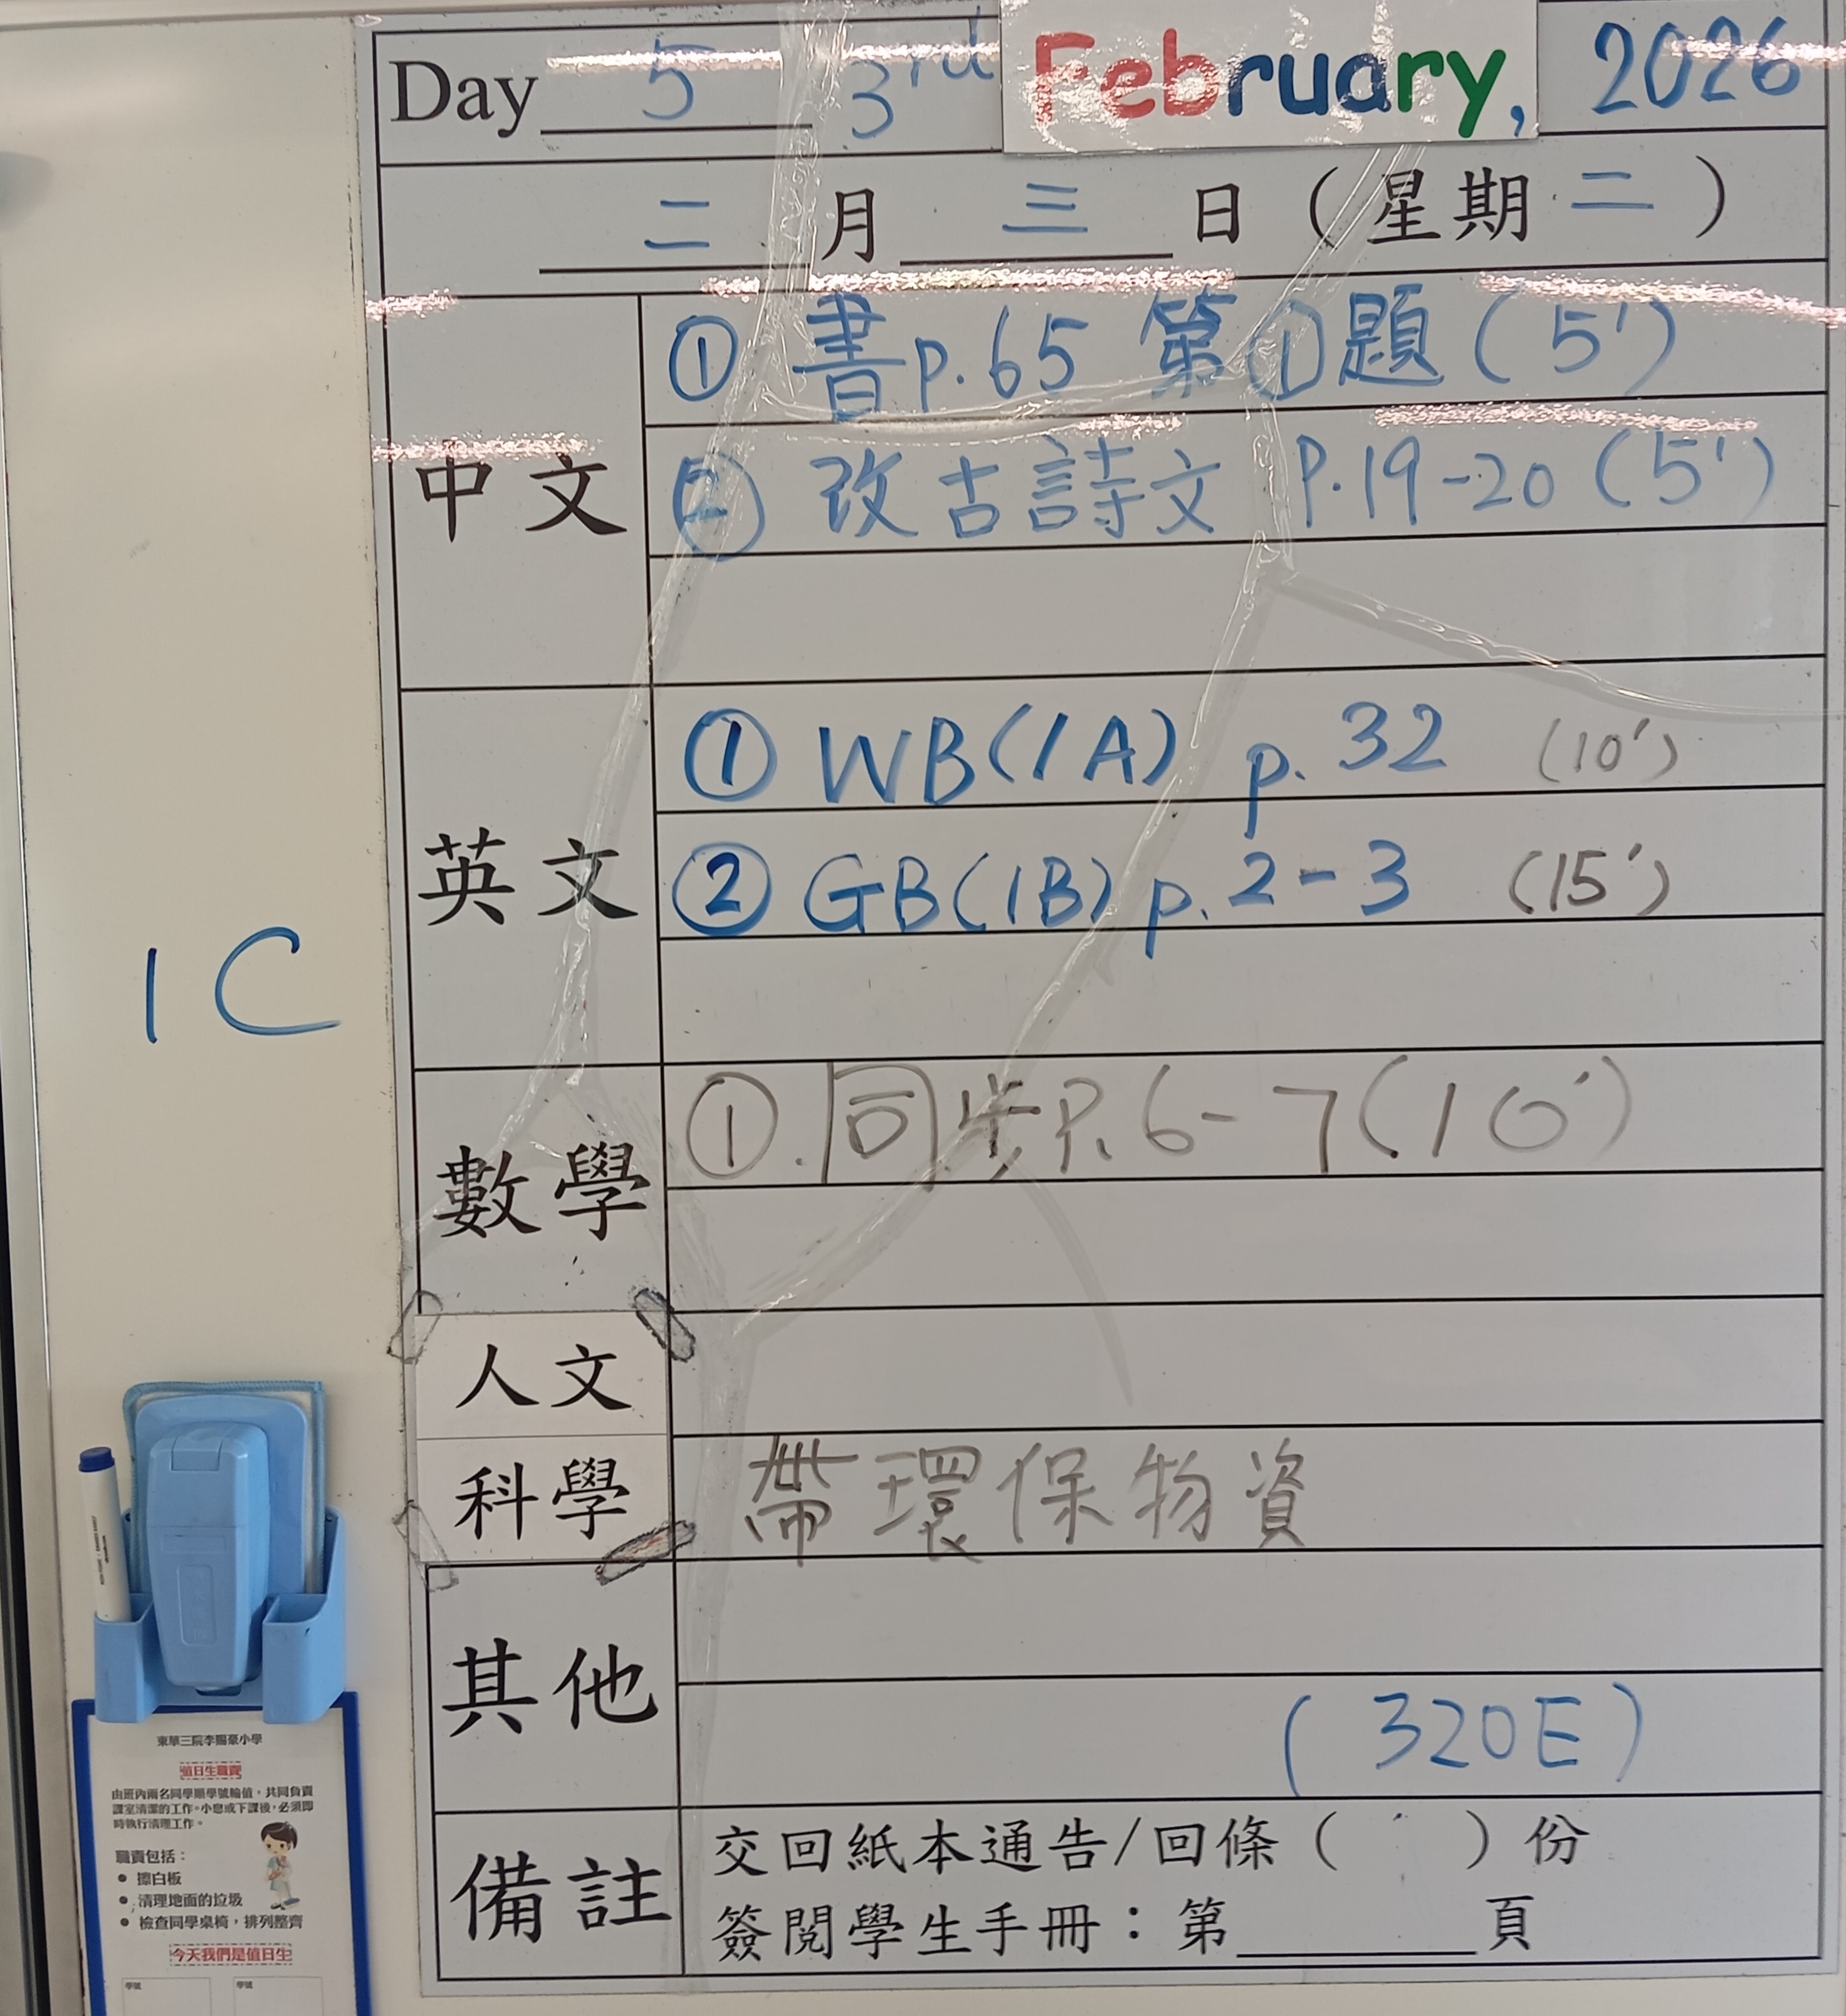 Day 5 3rd February, 2026
二 月 三 日 (星期 二 )
中文
① 書 p.65 第①題 (5')
② 改古詩文 P.19-20 (5')
英文
① WB(1A) p. 32 (10')
② GB(1B) p. 2-3 (15')
1C
數學
①. 同步P.6-7(10')
人文
科學
帶環保物資
其他
(320E)
備註
交回紙本通告/回條( )份
簽閱學生手冊：第 頁
東華三院李賜豪小學
值日生職責
由班內兩名同學順學號輪值，共同負責
課室清潔的工作。小息或下課後，必須即
時執行清理工作。
職責包括：
• 擦白板
• 清理地面的垃圾
• 檢查同學桌椅，排列整齊
今天我們是值日生
學號 學號